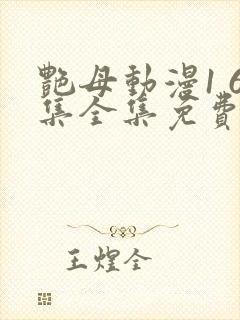 艷母動漫1 6
集全集免費
王煌全